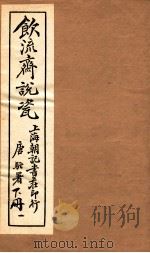 飲流齋說瓷
上海朝記書莊印行
唐駝署下册一